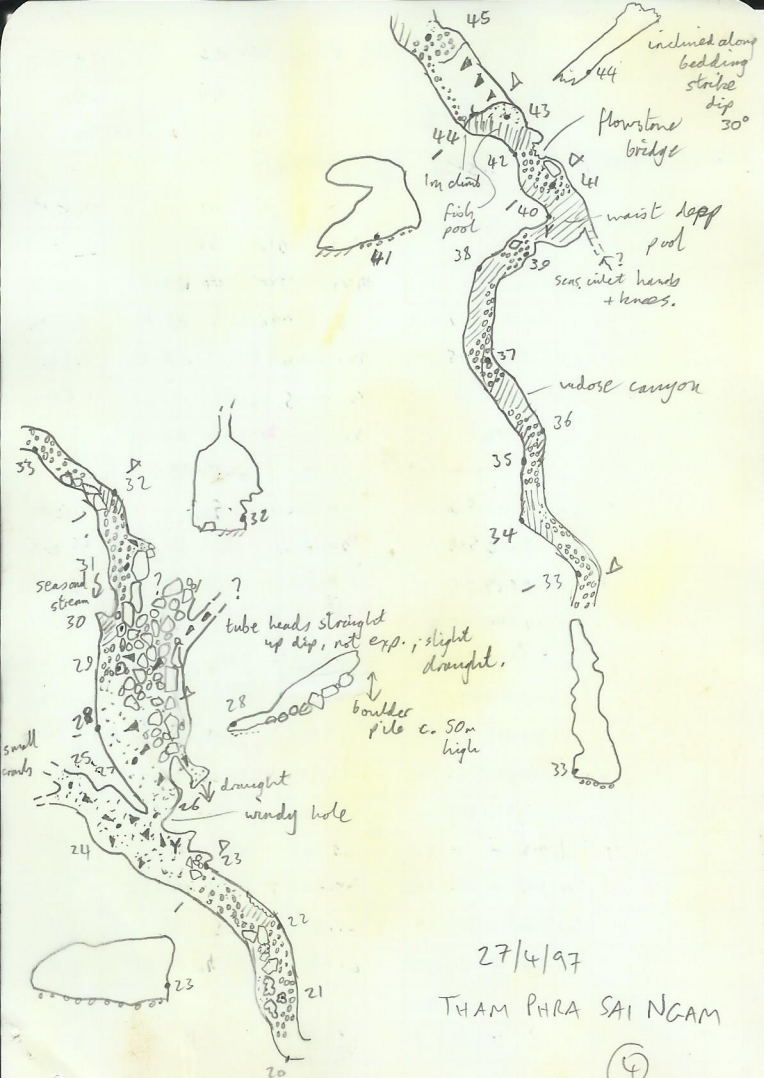 45
44
inclined along
bedding
strike
dip
30°
43
flowstone
bridge
44
42
1m climb
fish
pool
41
40
waist depp
pool
41
38
39
?
seas. inlet hands
+ knees.
37
vadose canyon
36
35
34
33
33
32
32
31
seasonal
stream
?
?
30
tube heads straight
up dip, not exp.; slight
draught.
29
28
28
boulder
pile c. 50m
high
33
small
25
27
draught
26
windy hole
24
23
22
23
21
20
27/4/97
THAM PHRA SAI NGAM
4